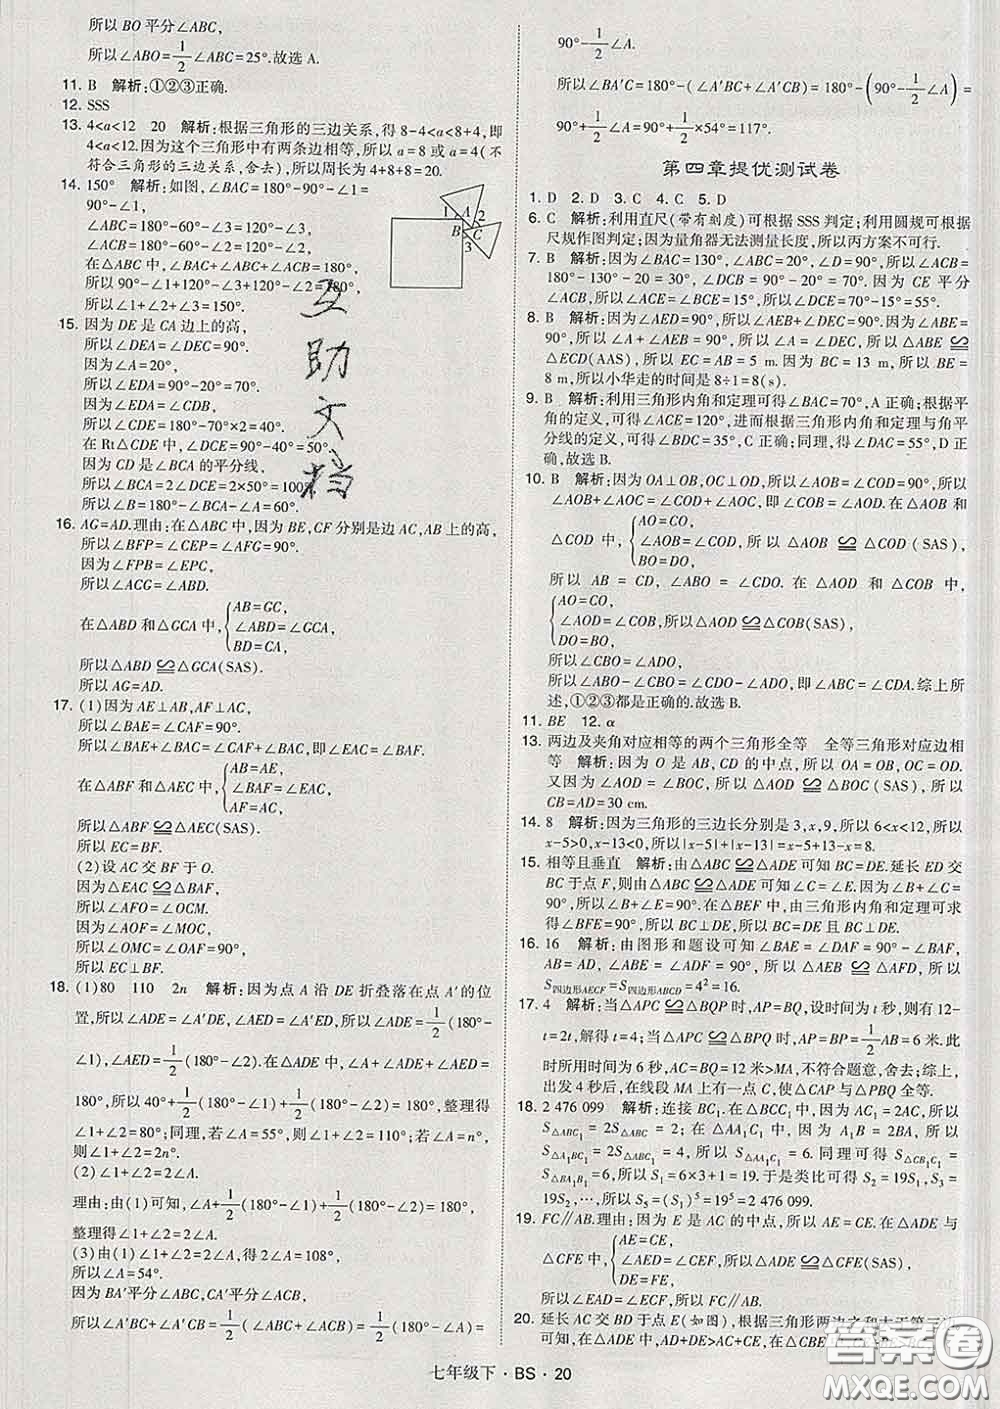 所以 BO 平分∠ABC,
所以∠ABO=1/2∠ABC=25°.故选 A.
11. B 解析:①②③正确.
12. SSS
13. 4<a<12 20 解析:根据三角形的三边关系,得 8-4<a<8+4,即
4<a<12.因为这个三角形中有两条边相等,所以 a=8 或 a=4(不
符合三角形的三边关系,舍去),所以周长为 4+8+8=20.
14. 150° 解析:如图,∠BAC=180°-90°-∠1=
90°-∠1,
∠ABC=180°-60°-∠3=120°-∠3,
∠ACB=180°-60°-∠2=120°-∠2,
在△ABC 中,∠BAC+∠ABC+∠ACB=180°,
所以 90°-∠1+120°-∠3+120°-∠2=180°,
所以∠1+∠2+∠3=150°.
1 A 2 B C 3
15. 因为 DE 是 CA 边上的高,
所以∠DEA=∠DEC=90°.
因为∠A=20°,
所以∠EDA=90°-20°=70°.
因为∠EDA=∠CDB,
所以∠CDE=180°-70°×2=40°.
在 Rt△CDE 中,∠DCE=90°-40°=50°.
因为 CD 是∠BCA 的平分线,
所以∠BCA=2∠DCE=2×50°=100°.
所以∠B=180°-∠BCA-∠A=60°.
16. AG=AD.理由:在△ABC 中,因为 BE,CF 分别是边 AC,AB 上的高,
所以∠BFP=∠CEP=∠AFG=90°.
因为∠FPB=∠EPC,
所以∠ACG=∠ABD.
在△ABD 和△GCA 中,{AB=GC,
∠ABD=∠GCA,
BD=CA,
所以△ABD≌△GCA(SAS).
所以 AG=AD.
17. (1)因为 AE⊥AB,AF⊥AC,
所以∠BAE=∠CAF=90°.
所以∠BAE+∠BAC=∠CAF+∠BAC,即∠EAC=∠BAF.
在△ABF 和△AEC 中,{AB=AE,
∠BAF=∠EAC,
AF=AC,
所以△ABF≌△AEC(SAS).
所以 EC=BF.
(2)设 AC 交 BF 于 O.
因为△EAC≌△BAF,
所以∠AFO=∠OCM.
因为∠AOF=∠MOC,
所以∠OMC=∠OAF=90°,
所以 EC⊥BF.
18. (1)80 110 2n 解析:因为点 A 沿 DE 折叠落在点 A′的位
置,所以∠ADE=∠A′DE,∠AED=∠A′ED,所以∠ADE=1/2(180°-
∠1),∠AED=1/2(180°-∠2).在△ADE 中,∠A+∠ADE+∠AED=
180°,所以 40°+1/2(180°-∠1)+1/2(180°-∠2)=180°,整理得
∠1+∠2=80°;同理,若∠A=55°,则∠1+∠2=110°;若∠A=n°,
则∠1+∠2=2n°.
(2)∠1+∠2=2∠A.
理由:由(1)可知,∠A+1/2(180°-∠1)+1/2(180°-∠2)=180°,
整理得∠1+∠2=2∠A.
(3)由(1)∠1+∠2=2∠A,得 2∠A=108°,
所以∠A=54°.
因为 BA′平分∠ABC,CA′平分∠ACB,
所以∠A′BC+∠A′CB=1/2(∠ABC+∠ACB)=1/2(180°-∠A)=
90°-1/2∠A.
所以∠BA′C=180°-(∠A′BC+∠A′CB)=180°-(90°-1/2∠A)=
90°+1/2∠A=90°+1/2×54°=117°.
第四章提优测试卷
1. D 2. D 3. C 4. C 5. D
6. C 解析:利用直尺(带有刻度)可根据 SSS 判定;利用圆规可根据
尺规作图判定;因为量角器无法测量长度,所以丙方案不可行.
7. B 解析:因为∠BAC=130°,∠ABC=20°,∠D=90°,所以∠ACB=
180°-130°-20°=30°,∠DCB=90°-20°=70°.因为 CE 平分
∠ACB,所以∠BCE=15°,所以∠DCE=70°-15°=55°.
8. B 解析:因为∠AED=90°,所以∠AEB+∠DEC=90°.因为∠ABE=
90°,所以∠A+∠AEB=90°,所以∠A=∠DEC,所以△ABE≌
△ECD(AAS),所以 EC=AB=5 m.因为 BC=13 m,所以 BE=
8 m,所以小华走的时间是 8÷1=8(s).
9. B 解析:利用三角形内角和定理可得∠BAC=70°,A 正确;根据平
角的定义,可得∠ACE=120°,进而根据三角形内角和定理与角平
分线的定义,可得∠BDC=35°,C 正确;同理,得∠DAC=55°,D 正
确.故选 B.
10. B 解析:因为 OA⊥OB,OC⊥OD,所以∠AOB=∠COD=90°,所以
∠AOB+∠AOC=∠COD+∠AOC,即∠COB=∠AOD.在△AOB 和
△COD 中,{AO=CO,
∠AOB=∠COD,
BO=DO,
所以△AOB≌△COD(SAS),
所以 AB=CD,∠ABO=∠CDO.在△AOD 和△COB 中,
{AO=CO,
∠AOD=∠COB,
DO=BO,
所以△AOD≌△COB(SAS),
所以∠CBO=∠ADO,
所以∠ABO-∠CBO=∠CDO-∠ADO,即∠ABC=∠CDA.综上所
述,①②③都是正确的.故选 B.
11. BE 12. α
13. 两边及夹角对应相等的两个三角形全等 全等三角形对应边相
等 解析:因为 O 是 AB,CD 的中点,所以 OA=OB,OC=OD.
又因为∠AOD=∠BOC,所以△AOD≌△BOC(SAS),所以
CB=AD=30 cm.
14. 8 解析:因为三角形的三边长分别是 3,x,9,所以 6<x<12,所以
x-5>0,x-13<0,所以|x-5|+|x-13|=x-5+13-x=8.
15. 相等且垂直 解析:由△ABC≌△ADE 可知 BC=DE.延长 ED 交
BC 于点 F,则由△ABC≌△ADE 可知∠C=∠E.因为∠B+∠C=
90°,所以∠B+∠E=90°.在△BEF 中,由三角形内角和定理可求
得∠BFE=90°,所以 BC⊥DE,所以 BC=DE 且 BC⊥DE.
16. 16 解析:由图形和题设可知∠BAE=∠DAF=90°-∠BAF,
AB=AD,∠ABE=∠D=90°,所以△ABE≌△ADF(ASA),所以
S四边形AECF=S四边形ABCD=4²=16.
17. 4 解析:当△APC≌△BQP 时,AP=BQ,设时间为 t 秒,则有 12-
t=2t,解得 t=4;当△APC≌△BPQ 时,AP=BP=1/2AB=6 米.此
时所用时间为 6 秒,AC=BQ=12 米>MA,不符合题意,舍去;综上,
出发 4 秒后,在线段 MA 上有一点 C,使△CAP 与△PBQ 全等.
18. 2 476 099 解析:连接 BC₁.在△BCC₁ 中,因为 AC₁=2AC,所以
S△ABC₁=2S△ABC=2;在△AA₁C₁ 中,因为 A₁B=2BA,所以
S△A₁BC₁=2S△ABC₁=4,所以 S△AA₁C₁=6.同理可得 S△CB₁C₁=
S△BA₁B₁=6,所以 S₁=6×3+1=19.于是类比可得 S₂=19S₁,S₃=
19S₂,…,所以 S₅=(S₁)⁵=19⁵=2 476 099.
19. FC∥AB.理由:因为 E 是 AC 的中点,所以 AE=CE.在△ADE 与
△CFE 中,{AE=CE,
∠AED=∠CEF,
DE=FE,
所以△ADE≌△CFE(SAS),
所以∠EAD=∠ECF,所以 FC∥AB.
20. 延长 AC 交 BD 于点 E(如图),根据三角形两边之和大于第三边
可知,在△ADE 中,AD+DE>AC+CE,在△CBE
七年级下·BS·20
互助文档
答案圈
MXQE.COM